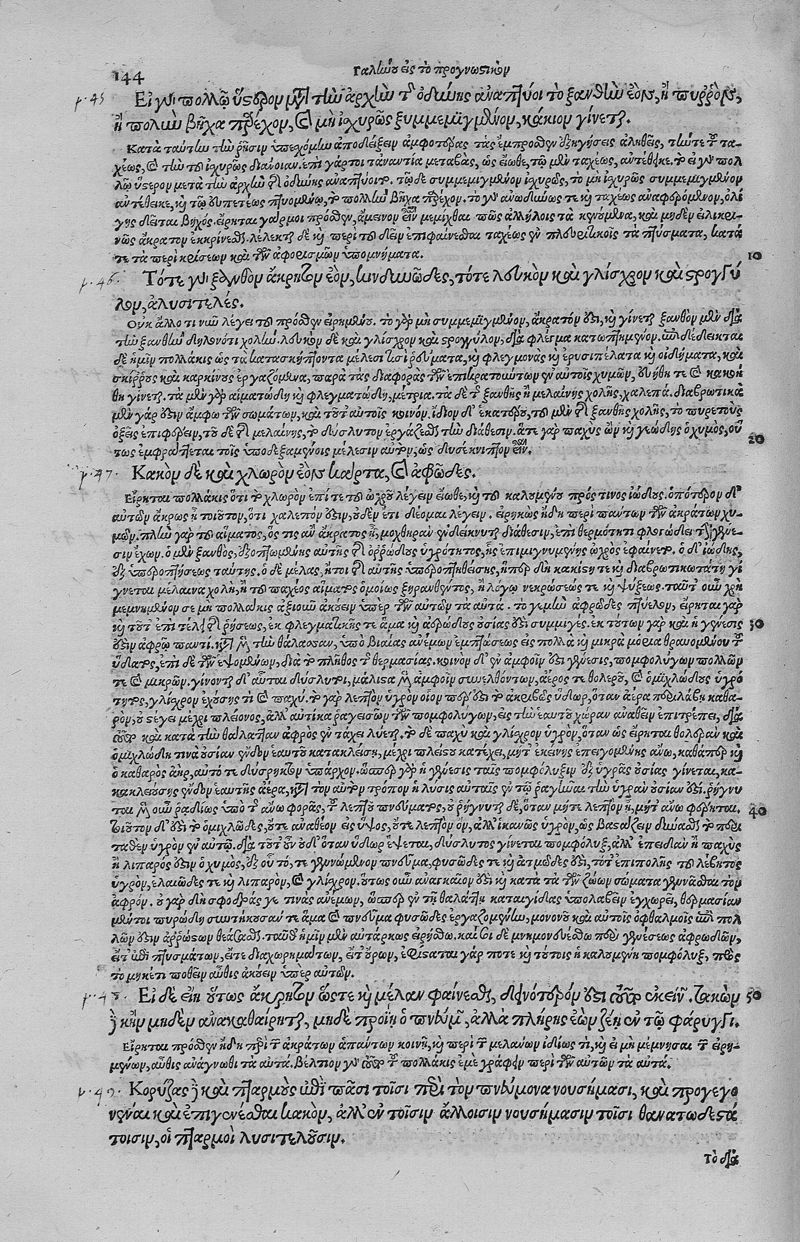 144
Γαληνοῦ εἰς τὸ προγνωστικὸν
p. 45 Εἰ γὰρ πολλῷ ὕστερον μετὰ τὴν ἀρχὴν τῆς ὀδύνης ἀναπτύοι τὸ ξανθὸν ἐὸν, ἢ πυρρὸν,
ἢ πολλὴν βῆχα παρέχον, καὶ μὴ ἰσχυρῶς ξυμμεμιγμένον, κάκιον γίνεται.
Κατὰ ταύτην τὴν ῥῆσιν ὑπεσχόμην ἀποδείξειν ἀμφοτέρας τὰς ἔμπροσθεν ἐξηγήσεις ἀληθεῖς, τήν τε τοῦ τα-
χέως, καὶ τὴν τοῦ ἰσχυρῶς διάνοιαν. ἐπὶ γάρ τοι τἀναντία μεταβὰς, ὡς εἴωθε, τῷ μὲν ταχέως, ἀντέθηκε. τὸ εἰ γὰρ πολ-
λῷ ὕστερον μετὰ τὴν ἀρχὴν τῆς ὀδύνης ἀναπτύοιτο. τῷ δὲ συμμεμιγμένον ἰσχυρῶς, τὸ μὴ ἰσχυρῶς συμμεμιγμένον
ἀντέθεικε, καὶ τῷ εὐπετέως πτυομένῳ, τὸ πολλὴν βῆχα παρέχον. τὸ γὰρ ἀνωδύνως τε καὶ ταχέως ἀναφερόμενον, ὀλί
γης δεῖται βηχός. εἴρηται γάρ μοι πρόσθεν, ἄμεινον εἶναι μεμίχθαι πως ἀλλήλοις τὰ κενούμενα, καὶ μηδὲν εἰλικρι-
νῶς ἄκρατον ἐκκρίνεσθαι. λέλεκται δὲ καὶ περὶ τοῦ δεῖν ἐπιφαίνεσθαι ταχέως ἐν πλευριτικοῖς τὰ πτύσματα, κατά
τε τὰ περὶ κρίσεων καὶ τῶν ἀφορισμῶν ὑπομνήματα. 10
p. 46. Τό τε γὰρ ξανθὸν ἄκρητον ἐὸν, κινδυνῶδες, τό τε λευκὸν καὶ γλίσχρον καὶ στρογγύ
λον, ἀλυσιτελές.
Οὐκ ἄλλο τι νῦν λέγει τοῦ πρόσθεν εἰρημένου. τὸ γὰρ μὴ συμμεμιγμένον, ἄκρατόν ἐστι, καὶ γίνεται ξανθὸν μὲν διὰ
τὴν ξανθὴν δηλονότι χολήν. λευκὸν δὲ καὶ γλίσχρον καὶ στρογγύλον, διὰ φλέγμα κατωπτημένον. ἐπιδέδεικται
δὲ ἡμῖν πολλάκις ὡς τὰ κατασκήπτοντα μέλεσί τισι ῥεύματα, καὶ φλεγμονὰς καὶ ἐρυσιπέλατα καὶ οἰδήματα, καὶ
σκίρρους καὶ καρκίνους ἐργαζόμενα, παρὰ τὰς διαφορὰς τῶν ἐπικρατούντων ἐν αὐτοῖς χυμῶν, εὐήθη τε καὶ κακοή
θη γίνεται. τὰ μὲν γὰρ αἱματώδη καὶ φλεγματώδη, μέτρια. τὰ δὲ τῆς ξανθῆς ἢ μελαίνης χολῆς, χαλεπά. διαβρωτικὰ
μὲν γάρ ἐστιν ἄμφω τῶν σωμάτων, καὶ τοῦτ' αὐτοῖς κοινόν. ἴδιον δ' ἑκατέρου, τοῦ μὲν τῆς ξανθῆς χολῆς, τὸ πυρετοὺς
ὀξεῖς ἐπιφέρειν, τοῦ δὲ τῆς μελαίνης, τὸ δύσλυτον ἐργάζεσθαι τὴν διάθεσιν. ἅτε γὰρ παχὺς ὢν καὶ γεώδης ὁ χυμός, οὕ
τως ἐμφράττεται τοῖς ὑποδεξαμένοις μέλεσιν αὐτὸν, ὡς δυσέκνιπτον εἶναι. 20
p. 47. Κακὸν δὲ καὶ χλωρὸν ἐὸν κάρτα, καὶ ἀφρῶδες.
Εἴρηται πολλάκις ὅτι τὸ χλωρὸν ἐπί τε τοῦ ὠχροῦ λέγειν εἴωθε, καὶ τοῦ καλουμένου πρός τινος ἰώδους. ὁπότερον δ'
αὐτῶν ἄκρως ᾖ τοιοῦτον, ὅτι χαλεπόν ἐστιν, οὐδὲν ἔτι δέομαι λέγειν. εἰρηκὼς ἤδη περὶ πάντων τῶν ἀκράτων χυ-
μῶν. πλὴν γὰρ τοῦ αἵματος, ὅς τις ἂν ἄκρατος ᾖ, μοχθηρὰν ἐνδείκνυται διάθεσιν, ἐπὶ θερμότητι φλογώδει τὴν γένε-
σιν ἔχων. ὁ μὲν ξανθὸς, ἐξοπτωμένης αὐτῆς τῆς ὀρρώδους ὑγρότητος, ἧς ἐπιμιγνυμένης ὠχρὸς ἐφαίνετο. ὁ δ' ἰώδης,
ἐξ ὑπεροπτήσεως ταύτης. ὁ δὲ μέλας, ἤτοι τῆς αὐτῆς ὑπεροπτηθείσης, ἥπερ δὴ κακίστη τε καὶ διαβρωτικωτάτη γί
γνεται μέλαινα χολὴ, ἢ τοῦ παχέος αἵματος ὁμοίως ξηρανθέντος, ἢ λόγῳ νεκρώσεώς τε καὶ ψύξεως. ταῦτ' οὖν χρὴ
μεμνημένον σε μὴ πολλάκις ἀξιοῦν ἀκούειν ὑπὲρ τῶν αὐτῶν τὰ αὐτά. τὸ γε μὴν ἀφρῶδες πτύελον, εἴρηται γὰρ
καὶ τοῦτ' ἐπὶ τέλει τῆς ῥήσεως, ἐκ φλεγματικῆς τε ἅμα καὶ ἀερώδους οὐσίας ἐστὶ συμμιγές. ἐκ τούτων γὰρ καὶ ἡ γένεσίς 30
ἐστιν ἀφρῷ παντί. κατὰ μὲν τὴν θάλασσαν, ὑπὸ βιαίας ἀνέμων ἐμπτώσεως εἰς πολλὰ καὶ μικρὰ μόρια θραυομένου τοῦ
ὕδατος, ἐπὶ δὲ τῶν ἑψομένων, διὰ τὸ πλῆθος τῆς θερμασίας. κοινὸν δ' ἐν ἀμφοῖν ἐστὶ γένεσις, πομφολύγων πολλῶν
τε καὶ μικρῶν. γίνονται δ' αὗται δύσλυτοι, μάλιστα μὲν ἀμφοῖν συνελθόντων, ἀέρος τε θολεροῦ, καὶ ὁμιχλώδους ὑγρό
τητος, γλίσχρον ἐχούσης τι καὶ παχύ. τὸ γὰρ λεπτὸν ὑγρὸν οἷον πέρ ἐστι τὸ ἀκριβῶς ὕδωρ, ὅταν ἀέρα περιλάβῃ καθα-
ρὸν, οὐ στέγει μέχρι πλείονος, ἀλλ' αὐτίκα ῥαγεισῶν τῶν πομφολύγων, εἰς τὴν ἑαυτοῦ χώραν ἀναθεῖν ἐπιτρέπει. διὰ
τοῦτο καὶ κατὰ τὴν θάλατταν ἀφρὸς ἐν τάχει λύεται. τὸ δὲ παχὺ καὶ γλίσχρον ὑγρὸν, ὅταν ὡς εἴρηται θολερὰν καὶ
ὁμιχλώδη τινὰ οὐσίαν ἔνδον ἑαυτοῦ κατακλείσῃ, μέχρι πλείστου κατέχει, μήτ' ἐκείνης ἐπειγομένης ἄνω, καθάπερ καὶ
ὁ καθαρὸς ἀὴρ, αὐτό τε δύσρηκτον ὑπάρχον. ὥσπερ γὰρ ἡ γένεσις ταῖς πομφόλυξιν ἐξ ὑγρᾶς οὐσίας γίνεται, κα-
τακλειούσης ἔνδον ἑαυτῆς ἀέρα, κατὰ τὸν αὐτὸν τρόπον ἡ λύσις αὐταῖς ἐν τῷ ῥαγῆναι τὴν ὑγρὰν οὐσίαν ἐστί. ῥήγνυ
ται μὲν οὖν ῥᾳδίως ὑπὸ τοῦ ἀνωφόρου, τοῦ λεπτοῦ πνεύματος, οὐ ῥήγνυται δὲ, ὅταν μήτε λεπτὸν ᾖ, μήτ' ἄνω φέρηται. 40
τοιοῦτον δ' ἐστὶ τὸ ὁμιχλῶδες, οὔτε ἀναθέον εἰς ὕψος, οὔτε λεπτὸν ὂν, ἀλλ' ἱκανῶς ὑγρὸν, ὡς βαστάζειν δύνασθαι τὸ περι
ταθὲν ὑγρὸν ἐν αὐτῷ. διὰ τοῦτ' οὖν οὐδ' ὅταν ὕδωρ ἕψεται, δύσλυτος γίνεται πομφόλυξ, ἀλλ' ἐπειδὰν ἢ παχὺς
ἢ λιπαρὸς ἐστὶν ὁ χυμὸς, ἐξ οὗ τό, τε γεννώμενον πνεῦμα, φυσῶδές τε καὶ ἀτμῶδές ἐστι, τό τ' ἐπιπολῆς τοῦ λέβητος
ὑγρὸν, ἐλαιῶδές τε καὶ λιπαρὸν, καὶ γλίσχρον. οὕτως οὖν ἀναγκαῖόν ἐστι καὶ κατὰ τὰ τῶν ζώων σώματα γεννᾶσθαι τὸν
ἀφρόν. οὐ γὰρ δὴ σφοδράς γέ τινας ἀνέμων, ὥσπερ ἐν τῇ θαλάττῃ καταιγίδας ὑπολαβεῖν ἐγχωρεῖ, θερμασίαν
μέντοι πυρώδη συντήκουσάν τε ἅμα καὶ πνεῦμα φυσῶδες ἐργαζομένην, μονονοὺ καὶ αὐτοῖς ὀφθαλμοῖς ἐπὶ πολ
λῶν ἐστιν ἀρρώστων θεάσασθαι. ταῦθ' ἡμῖν μὲν αὐτάρκως εἰρήσθω. καί σοι δὲ μνημονευέσθω περὶ γενέσεως ἀφρωδῶν,
εἴτ' ἐπὶ πτυσμάτων, εἴτε διαχωρημάτων, εἴτ' οὔρων, ἐφίσταται γάρ ποτε καὶ τούτοις ἡ καλουμένη πομφόλυξ, πρὸς
τὸ μηκέτι ποθεῖν αὖθις ἀκούειν ὑπὲρ αὐτῶν.
p. 48. Εἰ δὲ εἴη οὕτως ἄκρητον ὥστε καὶ μέλαν φαίνεσθαι, δεινότερόν ἐστι τοῦτο ἐκείνων. κακὸν 50
δὲ κἢν μηδὲν ἀνακαθαίρηται, μηδὲ προΐῃ ὁ πνεύμων, ἀλλὰ πλήρης ἐὼν ζέῃ ἐν τῷ φάρυγγι.
Εἴρηται πρόσθεν ἤδη περὶ τῶν ἀκράτων ἁπάντων κοινῇ, καὶ περὶ τῶν μελάνων ἰδίως τι, καὶ εἰ μὴ μέμνησαι τῶν εἰρη-
μένων, αὖθις ἀνάγνωθι τὰ αὐτά. βέλτιον γὰρ τοῦτο τοῦ πολλάκις ἐμὲ γράφειν περὶ τῶν αὐτῶν τὰ αὐτά.
p. 49. Κορύζας δὲ καὶ πταρμοὺς ἐπὶ πᾶσι τοῖσι περὶ τὸν πνεύμονα νουσήμασι, καὶ προγεγο
νέναι καὶ ἐπιγενέσθαι κακόν, ἀλλ' ἐν τοῖσιν ἄλλοισιν νουσήμασιν τοῖσι θανατωδεστά
τοισιν, οἱ πταρμοὶ λυσιτελοῦσιν.
Τὸ διὰ